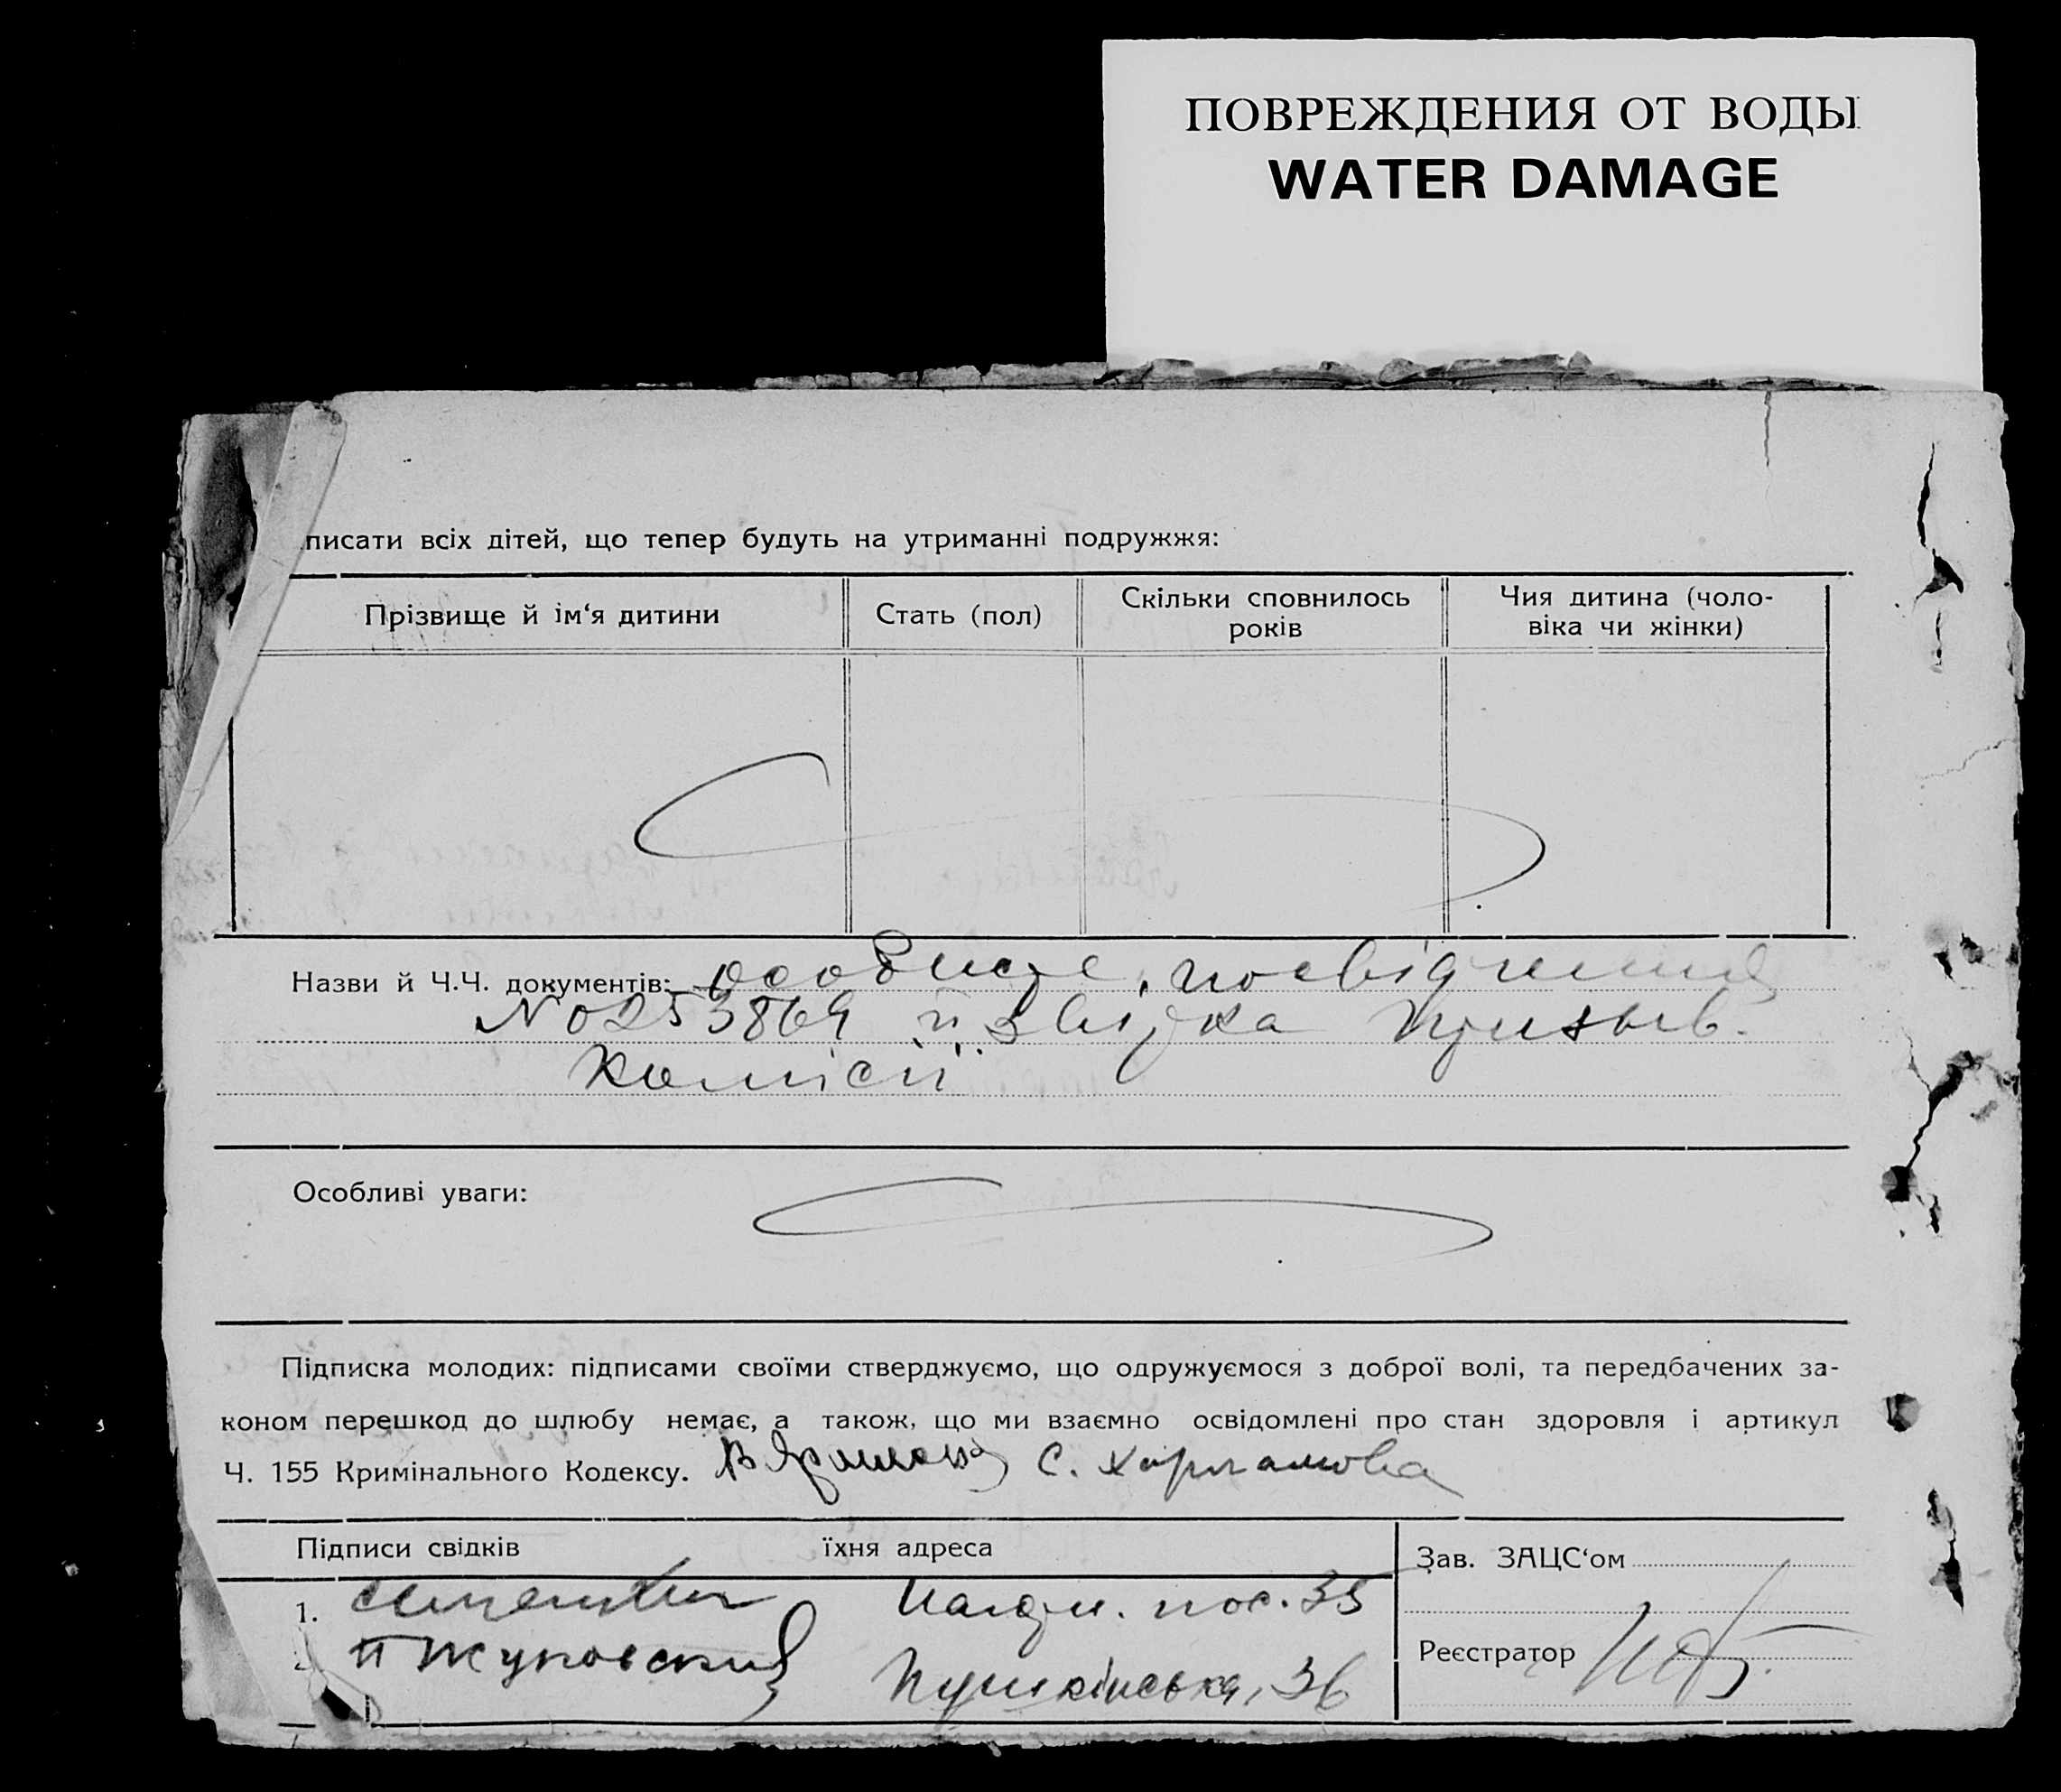 ПОВРЕЖДЕНИЯ ОТ ВОДЫ
WATER DAMAGE
писати всіх дітей, що тепер будуть на утриманні подружжя:
Прізвище й ім‘я дитини
Стать (пол)
Скільки сповнилось
років
Чия дитина (чоло-
віка чи жінки)
Назви й Ч.Ч. документів: особисте посвідчення
№ 0253869 й звідка призыв.
комісії
Особливі уваги:
Підписка молодих: підписами своїми стверджуємо, що одружуємося з доброї волі, та передбачених за-
коном перешкод до шлюбу немає, а також, що ми взаємно освідомлені про стан здоровля і артикул
Ч. 155 Кримінального Кодексу. С. Харламова
Підписи свідків
їхня адреса
Зав. ЗАЦС‘ом
1. 35
П Жуковский Пушкінська, 36
Реєстратор